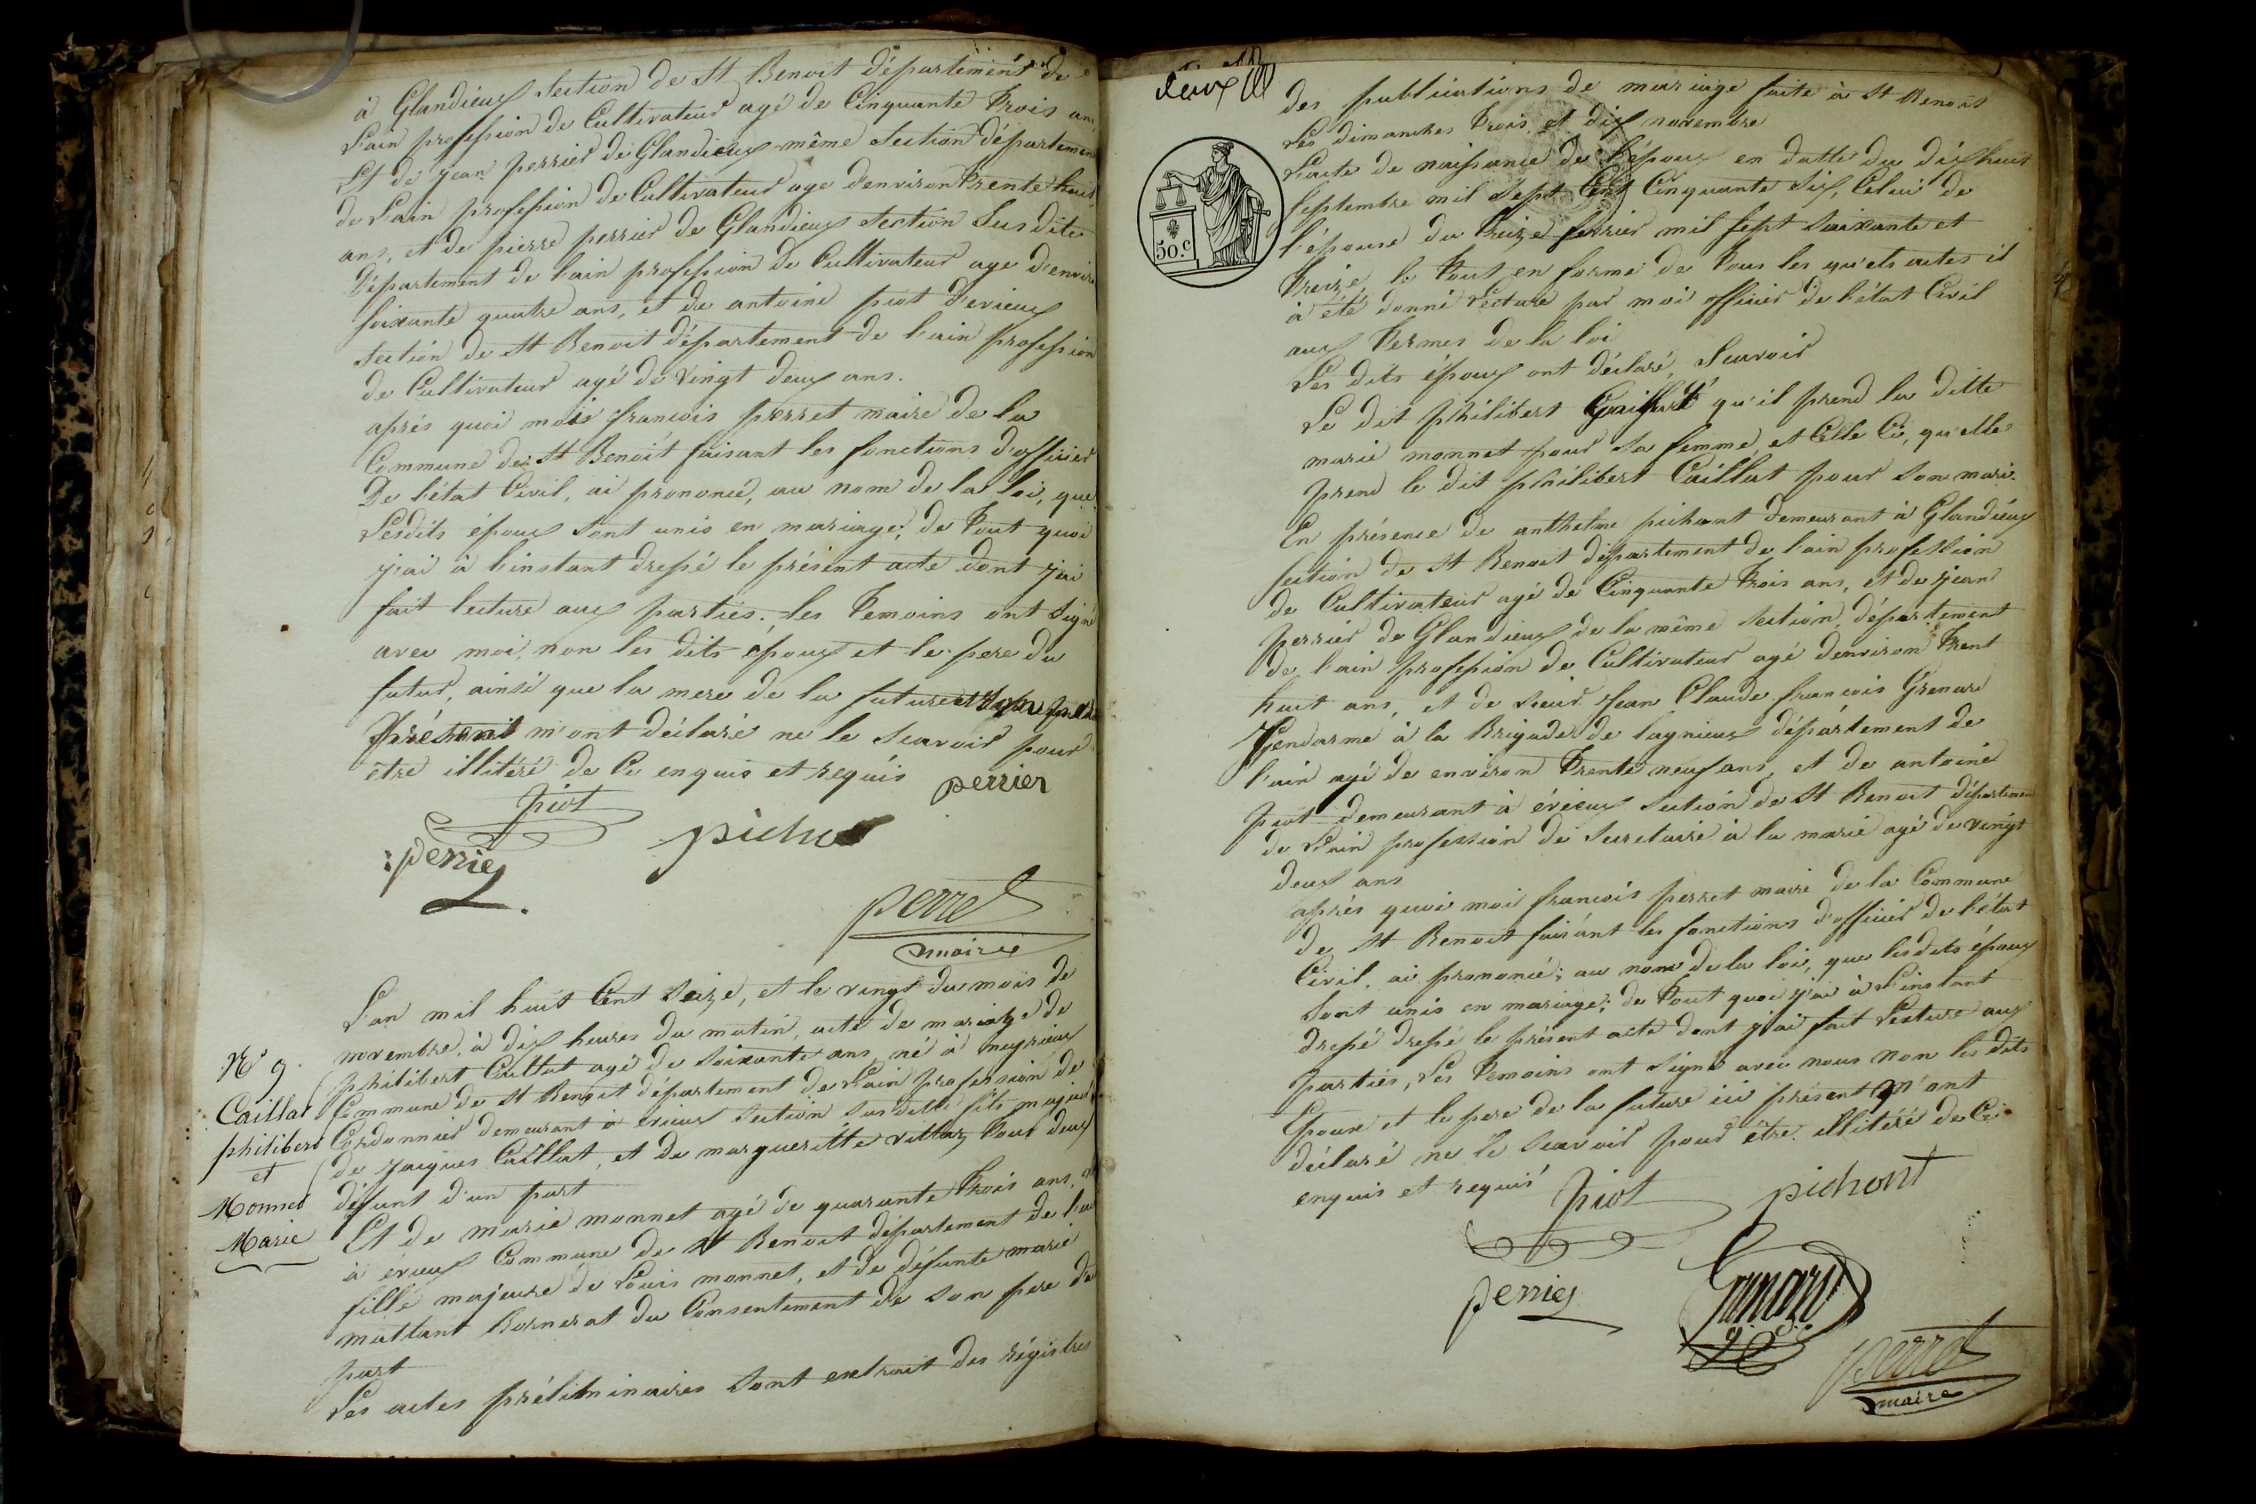 à Glandieux Section de St Benoit département de
L'ain profession de Cultivateur agé de Cinquante trois ans
Et de jean perrier de Glandieux même Section département
de L'ain profession de Cultivateur age denviron trente huit
ans, et de pierre perrier de Glandieux Section Susdite
Département de l'ain profession de Cultivateur age denviron
soixante quatre ans, et de antoine piot d'erieux
section de St Benoit département de l'ain profession
de Cultivateur agé de vingt deux ans.
après quoi moi francois perret maire de la
Commune de St Benoit faisant les fonctions d'officier
De l'état Civil, ai prononcé, au nom de la loi, que
Lesdits époux Sont unis en mariage; de tout quoi
j'ai à l'instant dressé le présent acte dont j'ai
fait lecture aux parties. les temoins ont Signé
avec moi, non les dits époux et le pere du
futur, ainsi que la mere de la future
présent m'ont déclaré ne le Scavoir pour
être illitéré de Ce enquis et requis
perrier
piot
pichon
perrier
perret
maire
L'an mil huit Cent Seize, et le vingt du mois de
novembre, à dix heures du matin, acte de mariage de
No 9.
Caillat
philibert
et
Monnet
Marie
philibert Caillat agé de Soixante ans, né à meyrieux
Commune de St Benoit département de L'ain profession de
Cordonnier demeurant à erieux Section Susditte fils majeur
de jacques Caillat, et de margueritte vittoz tous deux
défunt d'un part
Et de marie monnet agé de quarante trois ans,
à érieux Commune de St Benoit département de l'ain
fille majeure de Louis monnet, et de défunte marie
mattant Bornerat du Consentement de son pere de
part
Les actes préliminaires Sont extrait des régistres
deux
50.c
des publications de mariage faite à St Benoit
Les dimanches trois et dix novembre
L'acte de naissance de l'époux en datte du dixhuit
septembre mil Sept Cent Cinquante Six, Celui de
l'épouse du treize fevrier mil sept Soixante et
treize, le tout en forme de tous les quels actes il
à été donné Lecture par moi officier de l'état Civil
aux termes de la loi
Les dits époux ont déclaré, Scavoir
Le dit philibert Caillat qu'il prend la ditte
marie monnet pour Sa femme, et Celle Ci, qu'elle
prend le dit philibert Caillat pour Son mari.
En présence de anthelme pichont demeurant à Glandieux
section de St Benoit département de l'ain profession
de Cultivateur agé de Cinquante trois ans, et de jean
perrier de Glandieux de la même Section, département
de l'ain profession de Cultivateur agé denviron trent
huit ans, et de Sieur Jean Claude francois Grenard
Gendarme à la Brigade de lagnieux département de
l'ain agé de environ trente neuf ans, et de antoine
piot demeurant à érieux Section de St Benoit département
de L'ain profession de Secretaire à la marie agé de vingt
deux ans
après quoi moi francois perret maire de la Commune
de St Benoit faisant les fonctions d'officier de l'état
Civil, ai prononcé; au nom de la loi, que lesdits époux
Sont unis en mariage; de tout quoi j'ai à L'instant
dressé dressé le présent acte dont j'ai fait Lecture aux
parties, Les temoins ont Signé avec nous non les dits
Epoux et le pere de la future ici présent m'ont
déclaré ne le Scavoir pour être illitéré de Ce
enquis et requis
piot
pichont
perrier
Grenard
perret
maire